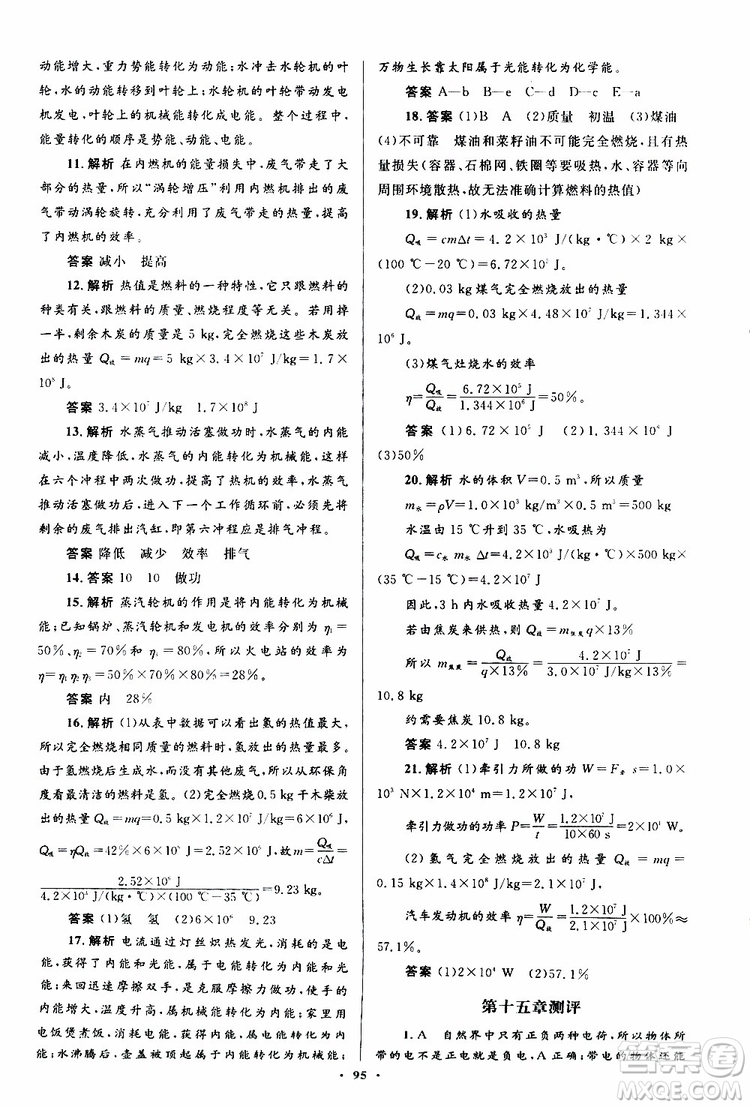 动能增大,重力势能转化为动能;水冲击水轮机的叶
轮,水的动能转移到叶轮上;水轮机的叶轮带动发电
机发电,叶轮上的机械能转化成电能。整个过程中,
能量转化的顺序是势能、动能、电能。
11.解析 在内燃机的能量损失中,废气带走了大
部分的热量,所以“涡轮增压”利用内燃机排出的废
气带动涡轮旋转,充分利用了废气带走的热量,提高
了内燃机的效率。
答案 减小 提高
12.解析 热值是燃料的一种特性,它只跟燃料的
种类有关,跟燃料的质量、燃烧程度等无关。若用掉
一半,剩余木炭的热值不变,完全燃烧这些木炭放
出的热量 Q放=mq=5 kg×3.4×10⁷ J/kg=1.7×
10⁸ J。
答案 3.4×10⁷ J/kg 1.7×10⁸ J
13.解析 水蒸气推动活塞做功时,水蒸气的内能
减少,温度降低,水蒸气的内能转化为机械能。这样
在六个冲程中两次做功,提高了热机的效率,水蒸气
推动活塞做功后,在进入下一个工作循环前,必须先将
剩余的废气排出汽缸,即第六冲程应是排气冲程。
答案 降低 减少 效率 排气
14.答案 10 10 做功
15.解析 蒸汽轮机的作用是将内能转化为机械
能;已知锅炉、蒸汽轮机和发电机的效率分别为 η₁=
50%、η₂=70%和 η₃=80%,所以火电站的效率为
η=η₁η₂η₃=50%×70%×80%=28%。
答案 内 28%
16.解析 (1)从表中数据可以看出氢的热值最大,
所以完全燃烧相同质量的燃料时,氢放出的热量最多;
由于氢燃烧后生成水,没有其他废气,所以从环保角
度看最清洁的燃料是氢。(2)完全燃烧0.5 kg干木柴放
出的热量 Q放=mq=0.5 kg×1.2×10⁷ J/kg=6×10⁶ J,
水的吸热 Q吸=42%×Q放=2.52×10⁶ J,故 m=Q吸/cΔt=
2.52×10⁶ J/4.2×10³ J/(kg·℃)×(100 ℃-35 ℃)=9.23 kg。
答案 (1)氢 氢 (2)6×10⁶ 9.23
17.解析 电流通过灯丝炽热发光,消耗的是电
能,获得内能和光能,属于电能转化为内能和光能;
冬天来回迅速摩擦双手,是克服摩擦力做功,手的
内能增大,温度升高,属于机械能转化为内能;家里用
电饭煲煮饭,消耗电能,获得内能,属于电能转化为内
能;水沸腾后,壶盖被顶起,属于内能转化为机械能;
万物生长靠太阳属于光能转化为化学能。
答案 A—b B—e C—d D—c E—a
18.答案 (1)B A (2)质量 初温 (3)煤油
(4)不可靠 煤油和菜籽油不可能完全燃烧,且有热
量损失(容器、石棉网、铁圈等要吸热,水、容器等向
周围环境散热,故无法准确计算燃料的热值)
19.解析 (1)水吸收的热量
Q吸=cmΔt=4.2×10³ J/(kg·℃)×2 kg×
(100 ℃-20 ℃)=6.72×10⁵ J
(2)0.03 kg煤气完全燃烧放出的热量
Q放=mq=0.03 kg×4.48×10⁷ J/kg=1.344×
10⁶ J
(3)煤气灶烧水的效率
η=Q吸/Q放=6.72×10⁵ J/1.344×10⁶ J=50%。
答案 (1)6.72×10⁵ J (2)1.344×10⁶ J
(3)50%
20.解析 水的体积 V=0.5 m³,所以
m水=ρV=1.0×10³ kg/m³×0.5 m³=500 kg
水温由15 ℃升到35 ℃,水吸热
Q吸=c水m水Δt=4.2×10³ J/(kg·℃)×500 kg
×(35 ℃-15 ℃)=4.2×10⁷ J
因此,3 h内水吸收热量 Q吸=4.2×10⁷ J
若由焦炭来供热,则 Q放=m焦炭q×13%
所以 m焦炭=Q放/q×13%=4.2×10⁷ J/3.0×10⁷ J/kg×13%≈
10.8 kg
约需要焦炭10.8 kg。
答案 4.2×10⁷ J 10.8 kg
21.解析 (1)牵引力所做的功 W=F牵s=1.2×
10³ N×1×10⁴ m=1.2×10⁷ J
牵引力做功的功率 P=W/t=1.2×10⁷ J/10×60 s=2×10⁴ W
(2)氢气完全燃烧放出的热量 Q放=mq=
0.15 kg×1.4×10⁸ J/kg=2.1×10⁷ J
汽车发动机的效率 η=W/Q放=1.2×10⁷ J/2.1×10⁷ J×100%≈
57.1%。
答案 (1)2×10⁴ W (2)57.1%
第十五章测评
1.A 自然界中只有正负两种电荷,所以物体所
带的电不是正电就是负电,A正确;带电的物体还能
· 95 ·
答案圈
MXQE.COM